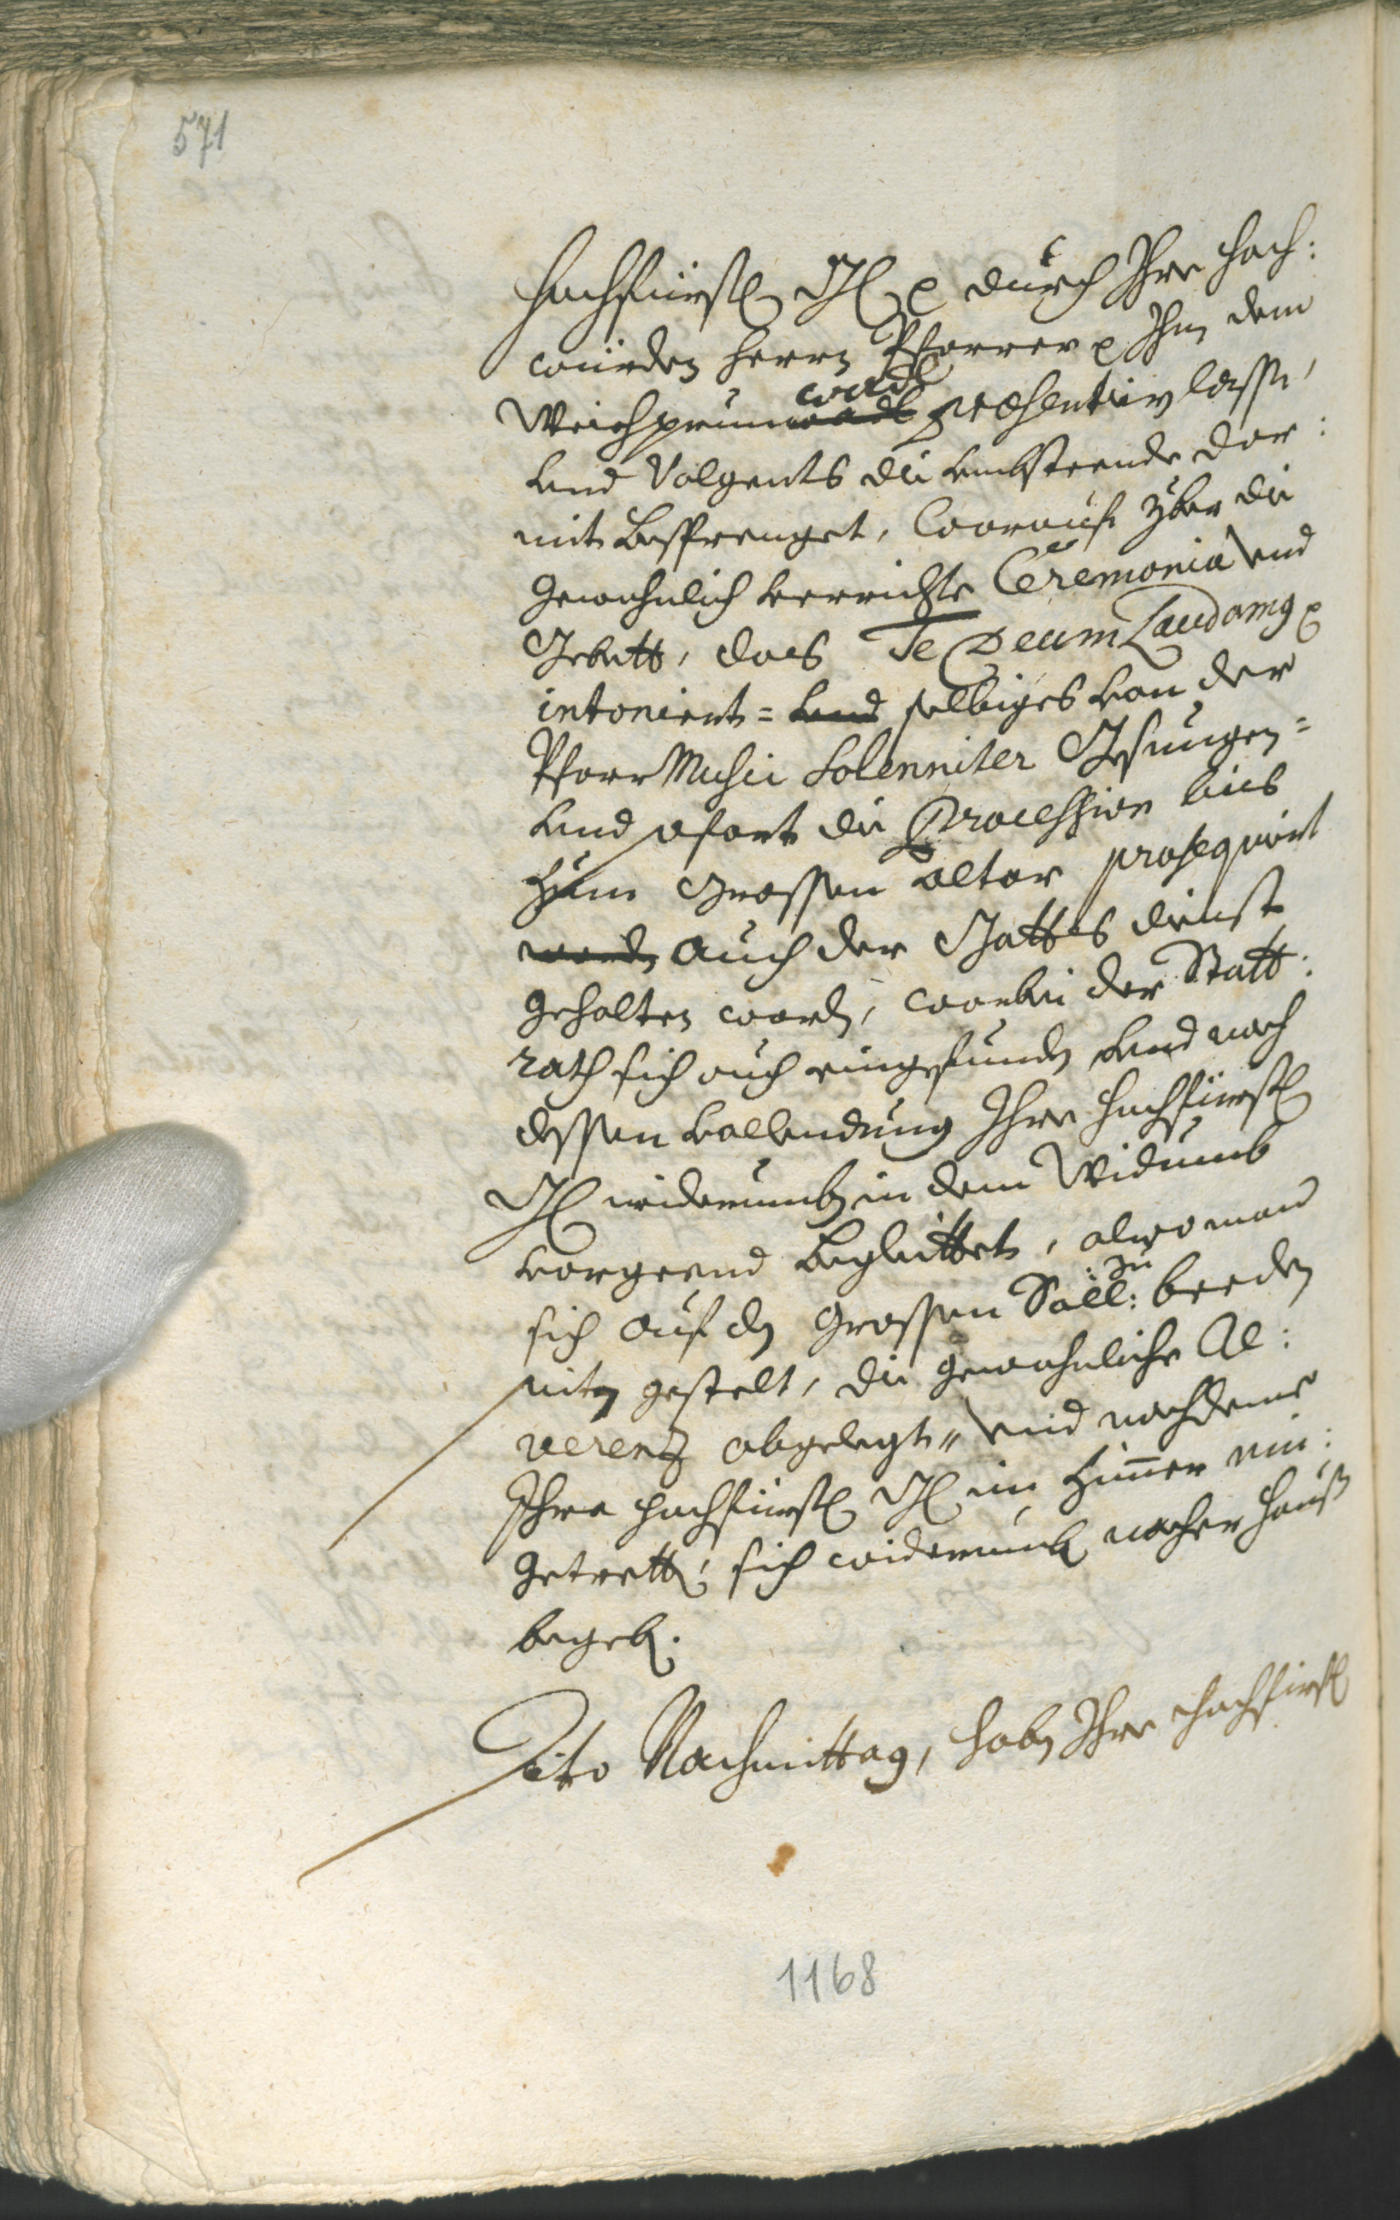 571
hochfürstl Gl p durch Ihre hoch:
würden herrn Pfarrer p Ihn dem
Weichprunn wadl præsentiern lassen,
vnd Volgents die vmbsteende dar:
mit besprenget, worauf yber die
gewohnlich verrichte Ceremonia vnd
Gebett, das Te Deum Laudamus p
intoniert = vnd selbiges von der
Pfarr Musici Solenniter Gesungen =
vnd sofort die Procession bis
zum Grossen altar prosequirt
worden auch der Gotts dienst
gehalten worden, worbei der Statt:
rath sich auch eingefunden vnd nach
dessen vollendung Ihre hochfürstl
Gl widerumb in dem Widumb
vorgeend begleittet, alwo man
sich auf den grossen Sall: zu beeden
seiten gestelt, die gewohnliche Re:
verenz abgelegt, vnd nachdeme
Ihre hochfürstl Gl im Zimmer ein:
getretten, sich widerumb nacher hauß
begeben.
Dito Nachmittag, haben Ihre hochfürstl
1168